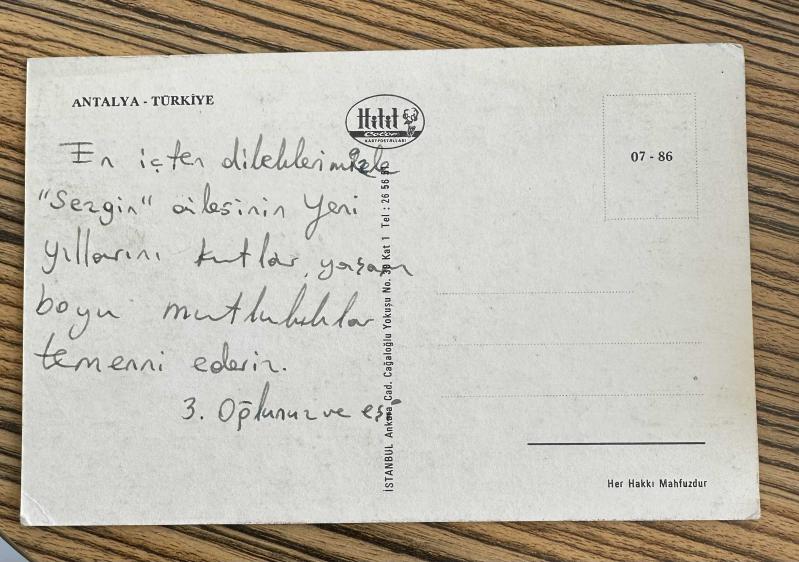 ANTALYA - TÜRKİYE
Hitit
Color
KARTPOSTALLARI
07 - 86
En içten dileklerimizle
"Sezgin" ailesinin Yeni
yıllarını kutlar, yaşam
boyu mutluluklar
temenni ederiz.
3. Oğlunuz ve eşi
İSTANBUL Ankara Cad. Cağaloğlu Yokuşu No. 39 Kat 1 Tel : 26 56
Her Hakkı Mahfuzdur